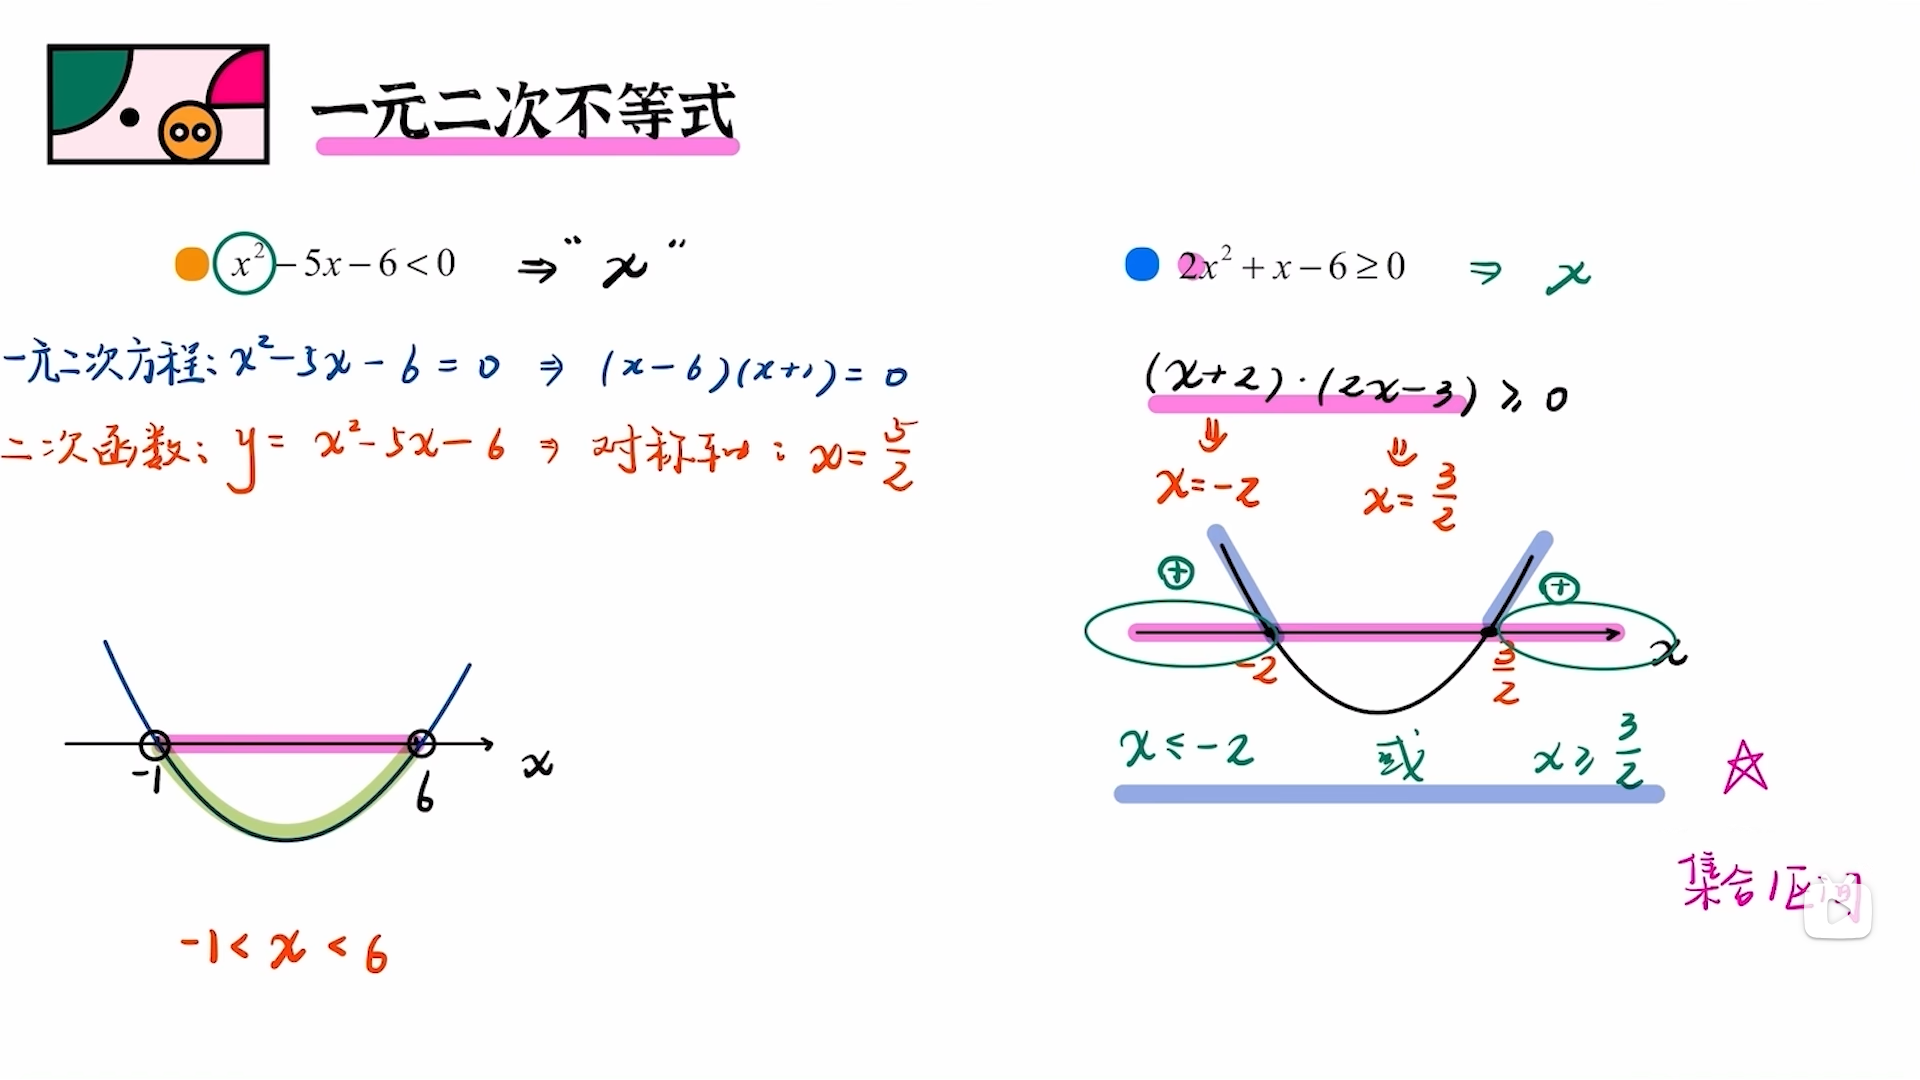 一元二次不等式
x² − 5x − 6 < 0 ⇒ “x”
一元二次方程: x² − 5x − 6 = 0 ⇒ (x − 6)(x + 1) = 0
二次函数: y = x² − 5x − 6 ⇒ 对称轴: x = 5/2
-1
6
x
-1 < x < 6
2x² + x − 6 ≥ 0 ⇒ x
(x+2)·(2x−3) ≥ 0
⇓ ⇓
x = -2 x = 3/2
+ +
-2 3/2 x
x ≤ -2 或 x ≥ 3/2 ☆
集合/区间